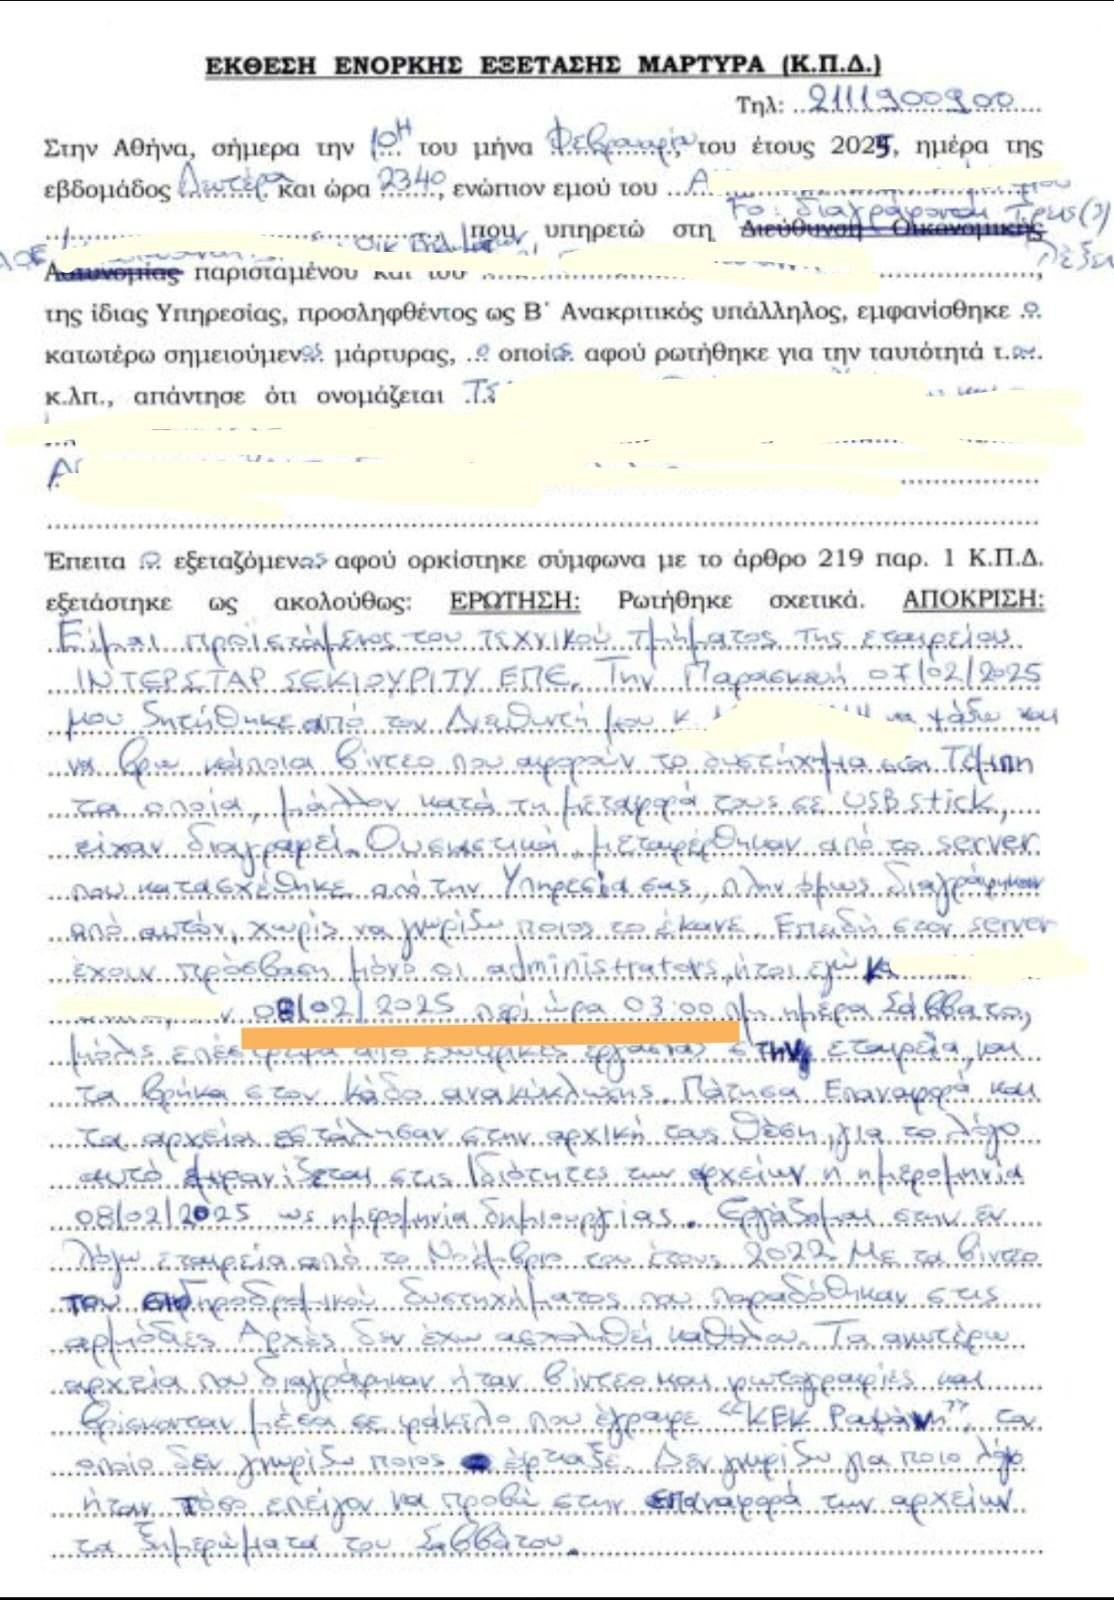 ΕΚΘΕΣΗ ΕΝΟΡΚΗΣ ΕΞΕΤΑΣΗΣ ΜΑΡΤΥΡΑ (Κ.Π.Δ.)
Τηλ: 2111900900
Στην Αθήνα, σήμερα την 10η του μήνα Φεβρουαρίου, του έτους 2025, ημέρα της
εβδομάδος Δευτέρα και ώρα 2340, ενώπιον εμού του Α
Το: διαγράφονται Τρεις (3)
που υπηρετώ στη Διεύθυνση Οικονομικής
λέξεις
Αστυνομίας παρισταμένου και του
της ίδιας Υπηρεσίας, προσληφθέντος ως Β' Ανακριτικός υπάλληλος, εμφανίσθηκε ο
κατωτέρω σημειούμενος μάρτυρας, ο οποίος αφού ρωτήθηκε για την ταυτότητά τ.ου.
κ.λπ., απάντησε ότι ονομάζεται ΤΣ
Α
Έπειτα ο εξεταζόμενος αφού ορκίστηκε σύμφωνα με το άρθρο 219 παρ. 1 Κ.Π.Δ.
εξετάστηκε ως ακολούθως: ΕΡΩΤΗΣΗ: Ρωτήθηκε σχετικά. ΑΠΟΚΡΙΣΗ:
Είμαι προϊστάμενος του τεχνικού τμήματος της εταιρείας
ΙΝΤΕΡΣΤΑΡ ΣΕΚΙΟΥΡΙΤΥ ΕΠΕ. Την Παρασκευή 07/02/2025
μου ζητήθηκε από τον Διευθυντή μου κ. να ψάξω και
να βρω κάποια βίντεο που αφορούν το δυστήχημα στα Τέμπη
τα οποία, μάλλον κατά τη μεταφορά τους σε USB stick,
είχαν διαγραφεί. Ουσιαστικά, μεταφέρθηκαν από το server
που κατασχέθηκε από την Υπηρεσία σας, πλην όμως διαγράφηκαν
από αυτόν, χωρίς να γνωρίζω ποιος το έκανε. Επειδή στον server
έχουν πρόσβαση μόνο οι administrators, ήτοι εγώ κ
08/02/2025 περί ώρα 03:00 πμ ημέρα Σάββατο,
μόλις επέστρεψα από εξωτερικές εργασίες στην εταιρεία, και
τα βρήκα στον κάδο ανακύκλωσης. Πάτησα Επαναφορά και
τα αρχεία εστάλησαν στην αρχική τους θέση, για το λόγο
αυτό εμφανίζεται στις Ιδιότητες των αρχείων η ημερομηνία
08/02/2025 ως ημερομηνία δημιουργίας. Εργάζομαι στην εν
λόγω εταιρεία από το Νοέμβριο του έτους 2022. Με τα βίντεο
του σιδηροδρομικού δυστηχήματος που παραδόθηκαν στις
αρμόδιες Αρχές δεν έχω ασχοληθεί καθόλου. Τα ανωτέρω
αρχεία που διαγράφηκαν ήταν βίντεο και φωτογραφίες και
βρίσκονταν μέσα σε φάκελο που έγραφε "ΚΕΚ Ραψάνη", τον
οποίο δεν γνωρίζω ποιος έφτιαξε. Δεν γνωρίζω για ποιο λόγο
ήταν τόσο επείγον να προβώ στην επαναφορά των αρχείων
τα ξημερώματα του Σαββάτου.